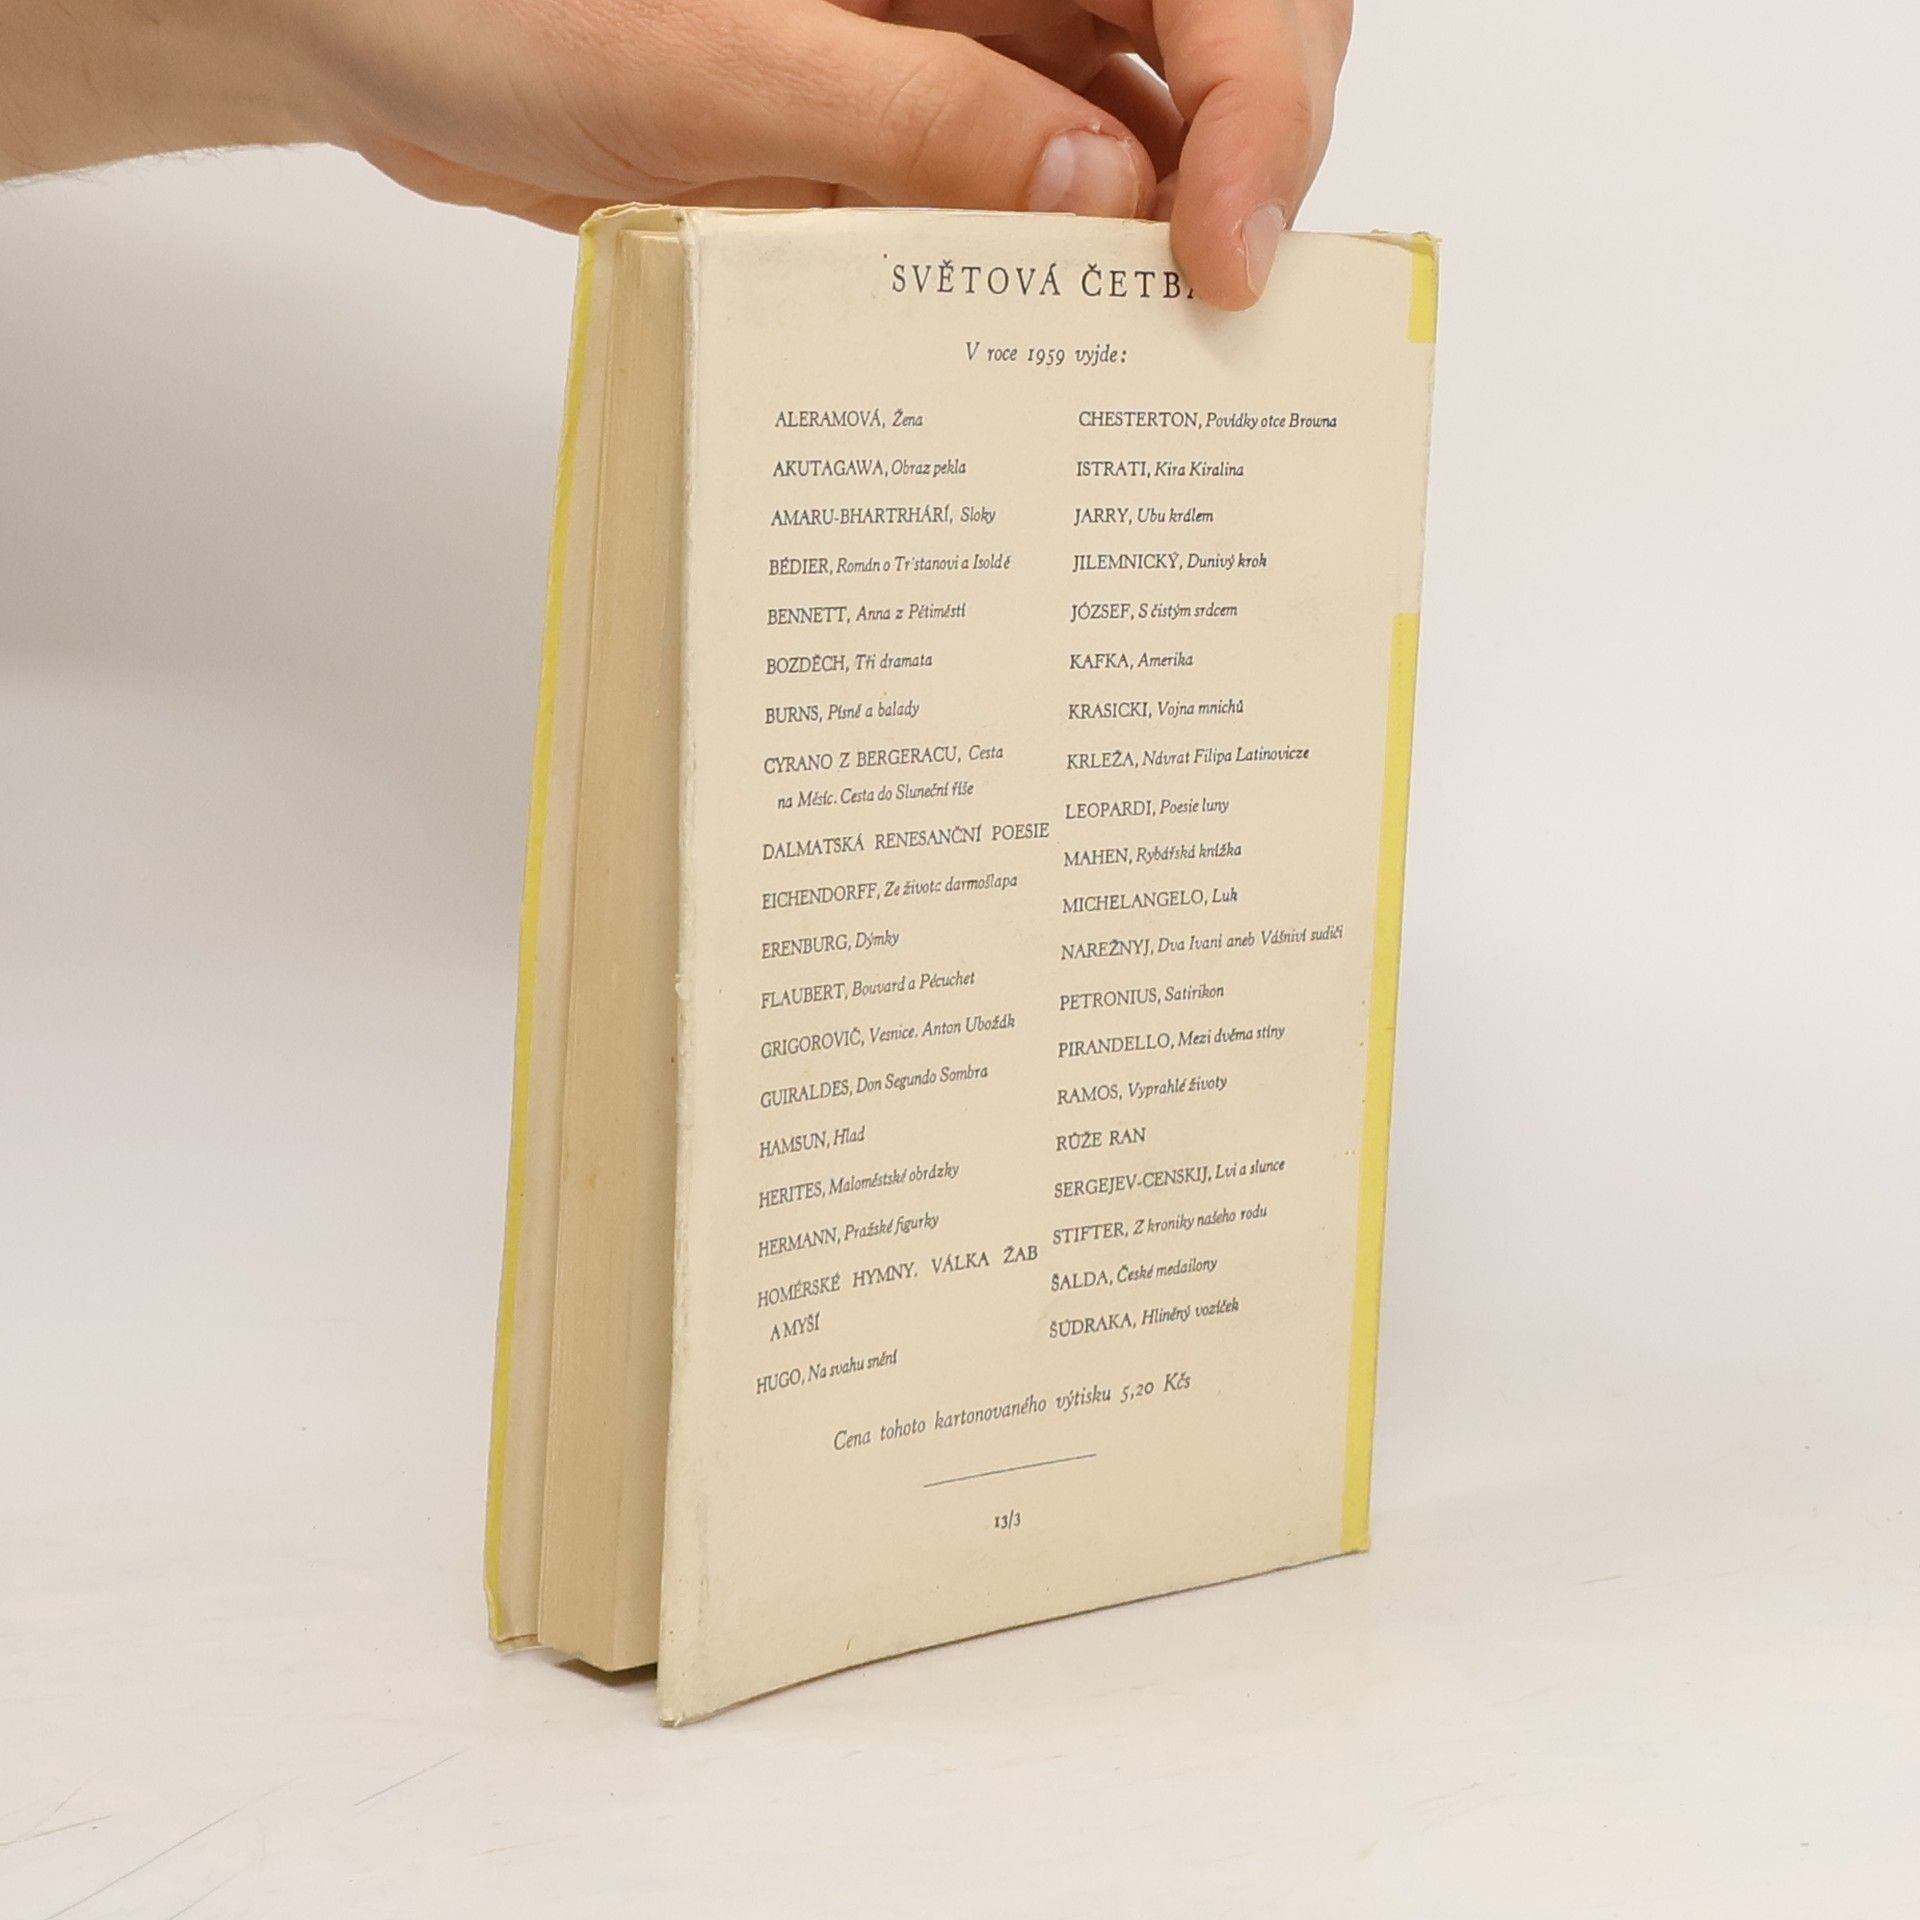 SVĚTOVÁ ČETB
V roce 1959 vyjde:
ALERAMOVÁ, Žena
AKUTAGAWA, Obraz pekla
AMARU-BHARTRHÁRÍ, Sloky
BÉDIER, Román o Tristanovi a Isoldě
BENNETT, Anna z Pětiměstí
BOZDĚCH, Tři dramata
BURNS, Písně a balady
CYRANO Z BERGERACU, Cesta
na Měsíc. Cesta do Sluneční říše
DALMATSKÁ RENESANČNÍ POESIE
EICHENDORFF, Ze života darmošlapa
ERENBURG, Dýmky
FLAUBERT, Bouvard a Pécuchet
GRIGOROVIČ, Vesnice. Anton Ubožák
GUIRALDES, Don Segundo Sombra
HAMSUN, Hlad
HERITES, Maloměstské obrázky
HERMANN, Pražské figurky
HOMÉRSKÉ HYMNY. VÁLKA ŽAB
A MYŠÍ
HUGO, Na svahu snění
CHESTERTON, Povídky otce Browna
ISTRATI, Kira Kiralina
JARRY, Ubu králem
JILEMNICKÝ, Dunivý krok
JÓZSEF, S čistým srdcem
KAFKA, Amerika
KRASICKI, Vojna mnichů
KRLEŽA, Návrat Filipa Latinovicze
LEOPARDI, Poesie luny
MAHEN, Rybářská knížka
MICHELANGELO, Luk
NAREŽNYJ, Dva Ivani aneb Vášniví sudiči
PETRONIUS, Satirikon
PIRANDELLO, Mezi dvěma stíny
RAMOS, Vyprahlé životy
RŮŽE RAN
SERGEJEV-CENSKIJ, Lvi a slunce
STIFTER, Z kroniky našeho rodu
ŠALDA, České medailony
ŠÚDRAKA, Hliněný vozíček
Cena tohoto kartonovaného výtisku 5,20 Kčs
13/3